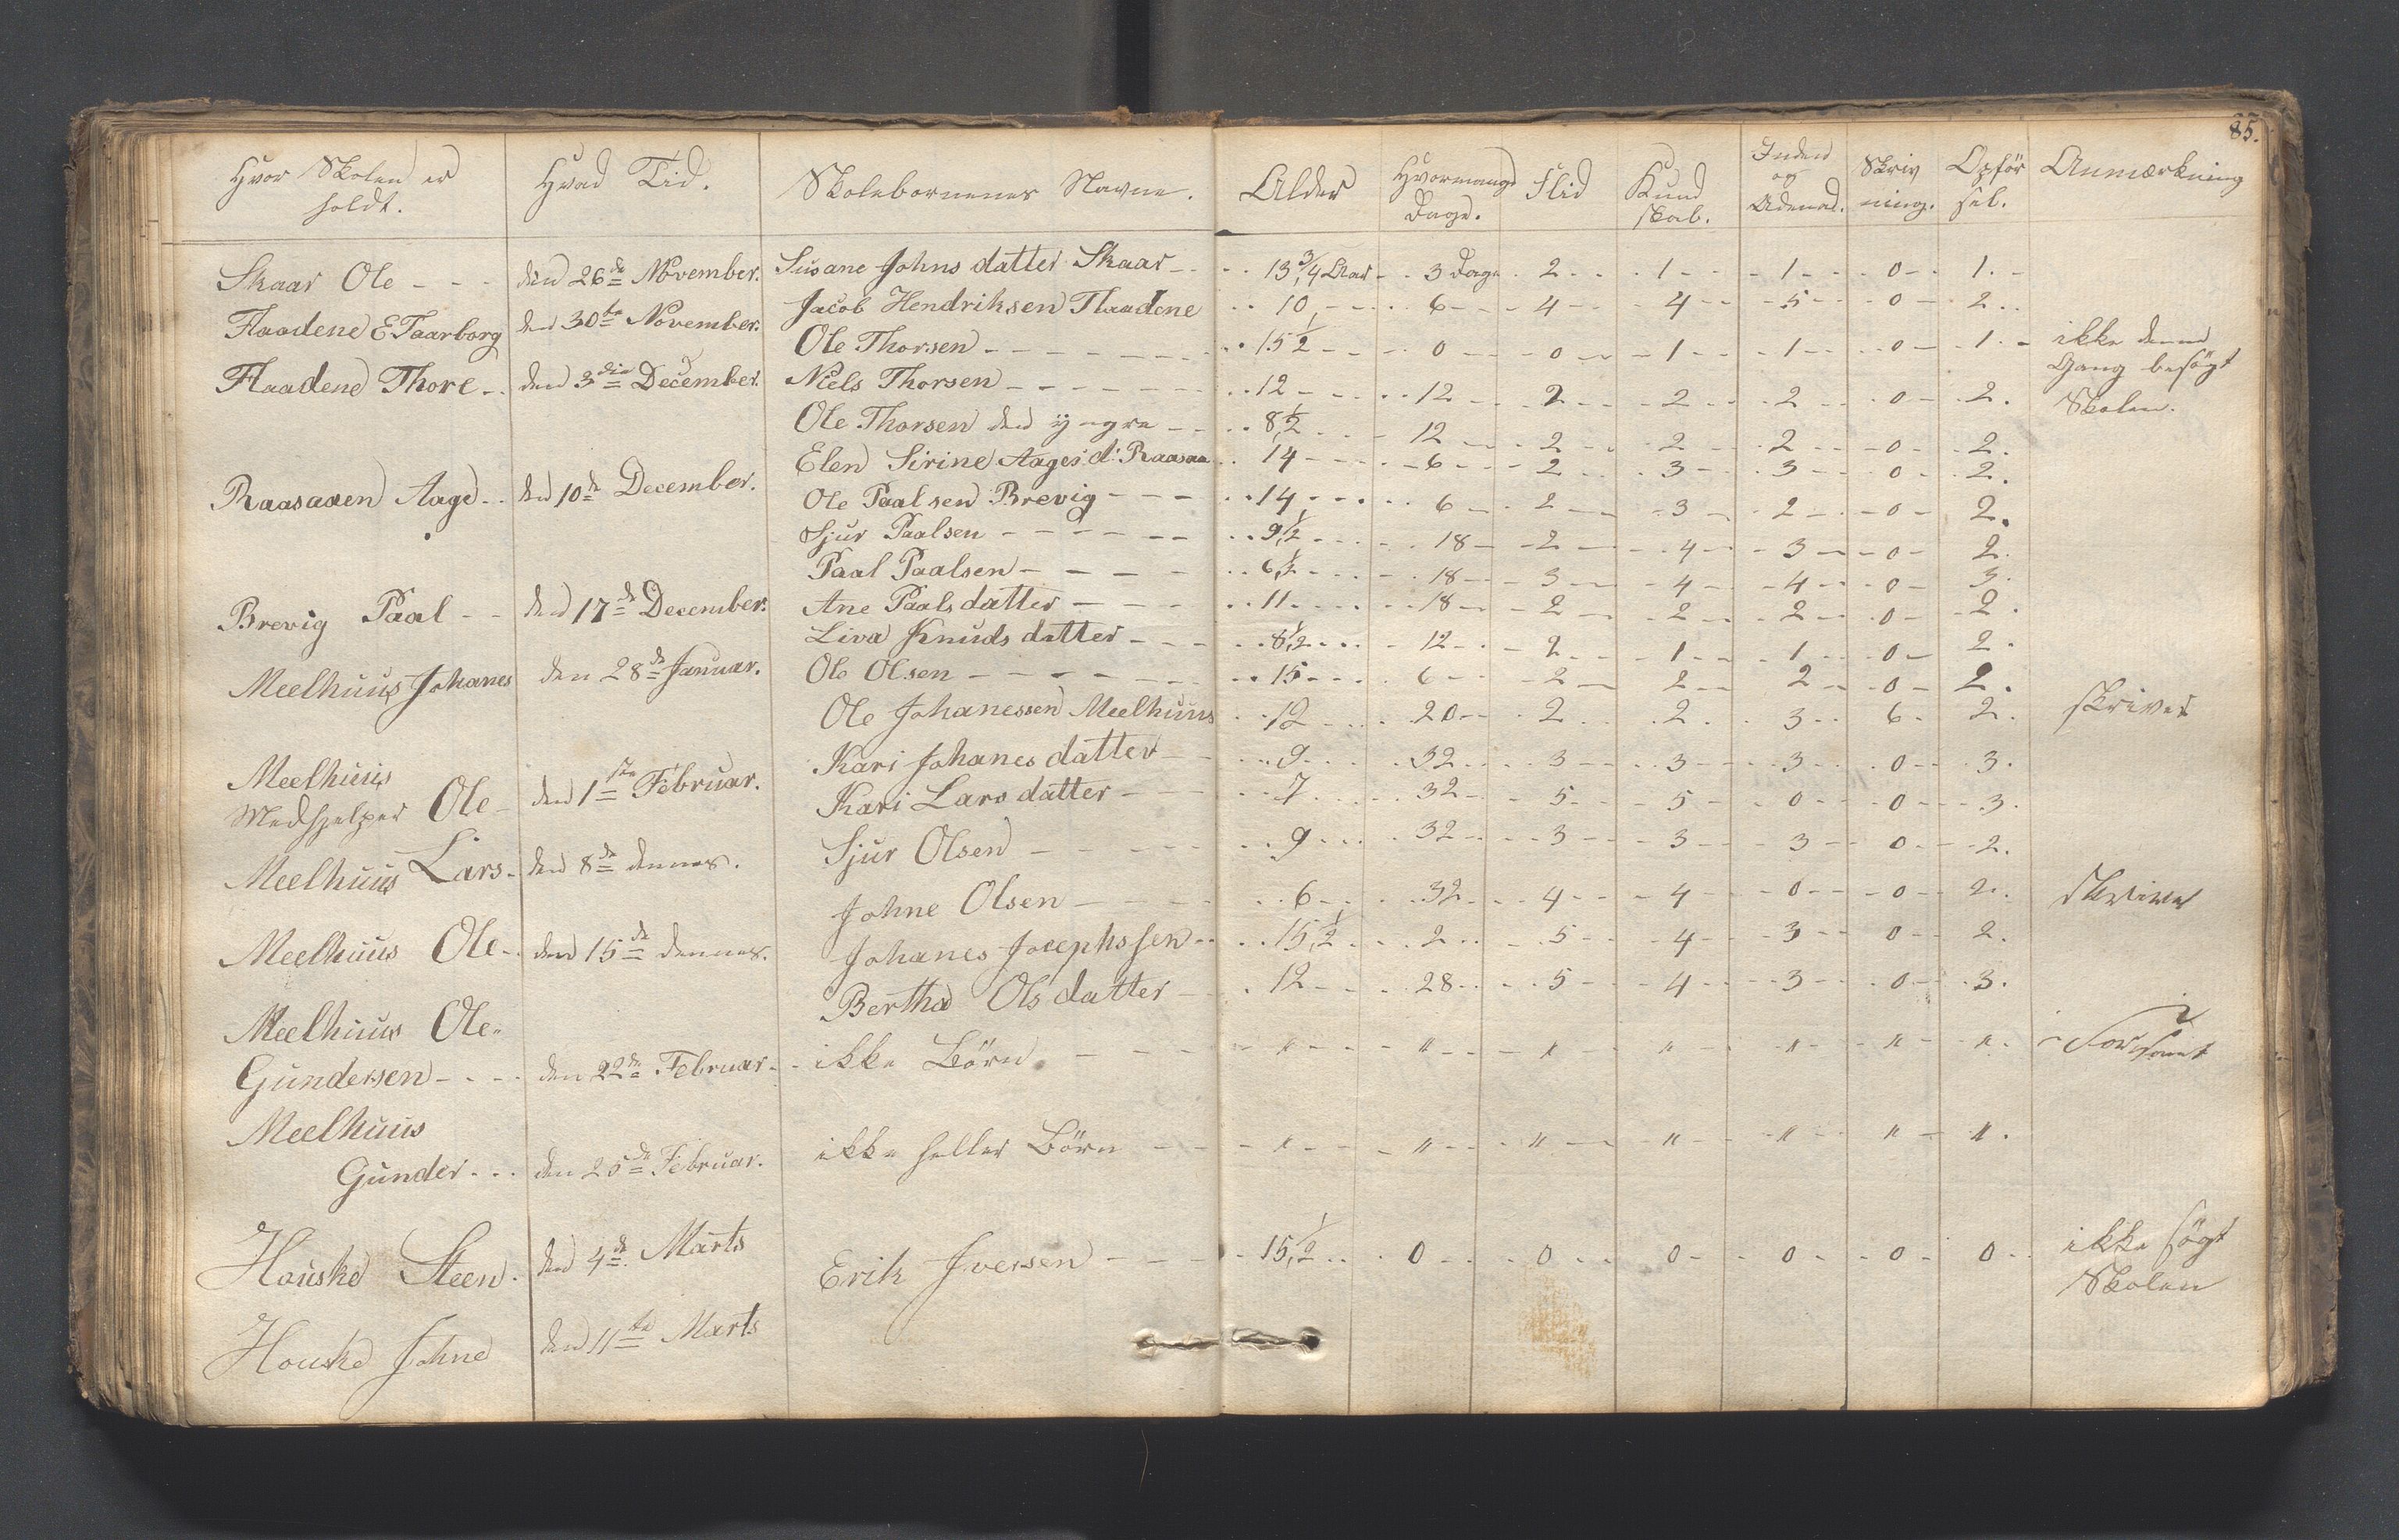 85.
Hvor Skolen er holdt. Hvad Tid. Skolebørnenes Navne. Alder Hvormange Dage. Flid Kund skab. Inden og Udenad. Skriv ning. Opför sel. Anmærkning
Skaar Ole - - - den 26de November. Susane Johns datter Skaar - - 13 3/4 Aar - 3 Dage 2 1 1 0 1
Flaadene E Taarborg den 30te November. Jacob Hendriksen Flaadene 10 6 4 4 5 0 2
Ole Thorsen 15 1/2 0 0 1 1 0 1 ikke denne Gang besögt Skolen.
Flaadene Thore - den 3die December. Niels Thorsen 12 12 2 2 2 0 2.
Ole Thorsen den yngre 8 1/2 12 2 2 2 0 2.
Elen Sirine Aages d: Raasaa 14 6 2 3 3 0 2.
Raasaaen Aage - den 10de December. Ole Paalsen Brevig 14 6 2 3 2 0 2.
Sjur Paalsen 9 1/2 18 2 4 3 0 2.
Paal Paalsen 6 1/2 18 3 4 4 0 3.
Brevig Paal - - den 17de December. Ane Paalsdatter 11 18 2 2 2 0 2.
Liva Knuds datter 8 1/2 12 2 1 1 0 2.
Meelhuus Johanes den 28de Januar. Ole Olsen 15 6 2 2 2 0 2.
Ole Johanessen Meelhuus 12 20 2 2 3 6 2. skriver
Kari Johanes datter 9 32 3 3 3 0 3.
Meelhuus
Medhjelper Ole - den 1ste Februar. Kari Lars datter 7 32 5 5 0 0 3.
Sjur Olsen 9 32 3 3 3 0 2.
Meelhuus Lars - den 8de dennes.
Johne Olsen 6 32 4 4 0 0 2. skriver
Meelhuus Ole - den 15de dennes. Johanes Josephssen 15 1/2 2 5 4 3 0 2.
Bertha Ols datter 12 28 5 4 3 0 3.
Meelhuus Ole
Gundersen - - - den 22de Februar - ikke Börn - - - " " " " " " ".
Meelhuus
Gunder - - - den 25de Februar. ikke heller Börn - - " " " " " " ".
Houske Steen. den 4de Marts Erik Iversen 15 1/2 0 0 0 0 0 0 ikke sögt Skolen
Houske Johne den 11te Marts